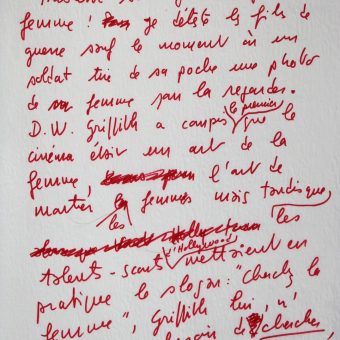 femme ! Je déteste les films de
guerre sauf le moment où un
soldat tire de sa poche une photo
de femme pour la regarder.
D. W. Griffith a compris le premier que le
cinéma était un art de la
femme, l'art de
montrer les femmes mais tandis que
les
talents-scouts d'Hollywood mettaient en
pratique le slogan : "Cherchez la
femme", Griffith lui, n'
besoin de chercher,